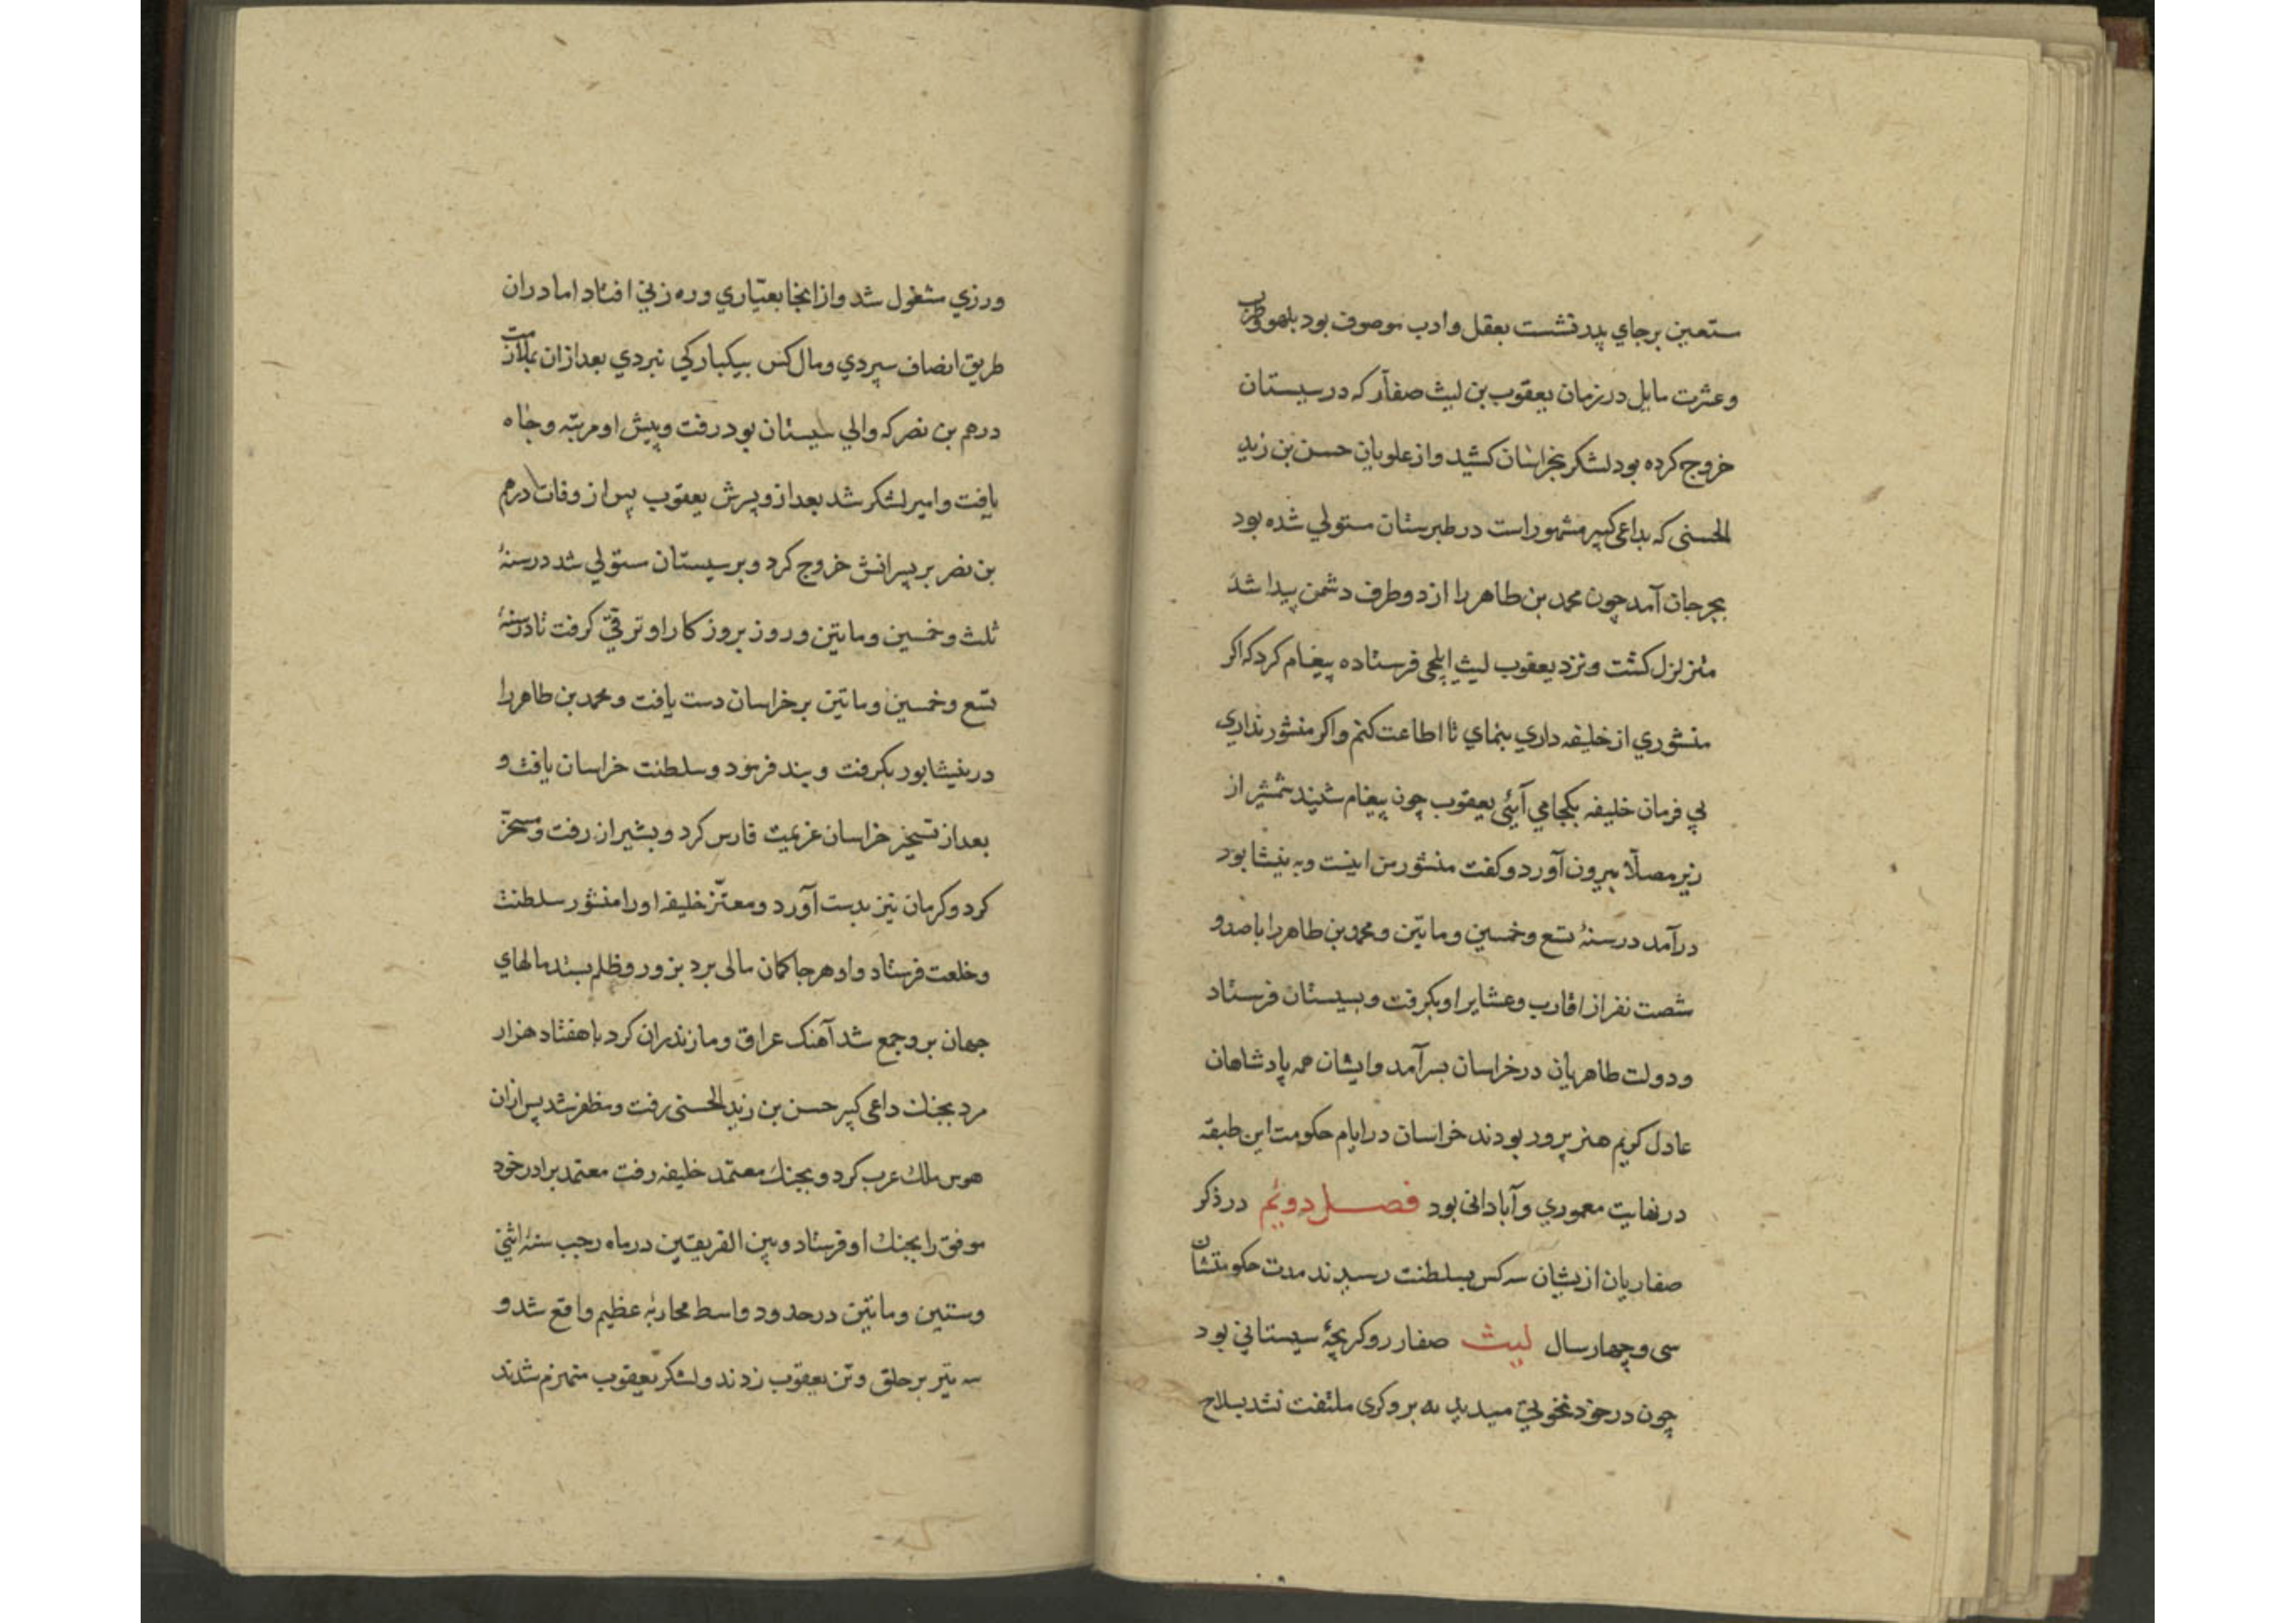 ستعین برجای پدر نشست بعقل و ادب موصوف بود بلهو و طرب
و عشرت مایل در زمان یعقوب بن لیث صفار که در سیستان
خروج کرده بود لشکر بخراسان کشید و از علویان حسن بن زید
الحسنی که بداعی کبیر مشهور است در طبرستان مستولی شده بود
بجرجان آمد چون محمد بن طاهر را از دو طرف دشمن پیدا شد
متزلزل کشت و نزد یعقوب لیث ایلچی فرستاده پیغام کرد که اکر
منشوری از خلیفه داری بنمای تا اطاعت کنم و اکر منشور نداری
بی فرمان خلیفه بکجا می آیئی یعقوب چون پیغام شنید شمشیر از
زیر مصلّا بیرون آورد و کفت منشور من اینست و به نیشابور
درآمد در سنهٔ تسع و خمسین و ماتین و محمد بن طاهر را با صد و
شصت نفر از اقارب و عشایر او بکرفت و بسیستان فرستاد
و دولت طاهریان در خراسان بسرآمد و ایشان همه پادشاهان
عادل کریم هنرپرور بودند خراسان در ایام حکومت این طبقه
در نهایت معموری و آبادانی بود فصل دویم در ذکر
صفاریان از یشان سه کس بسلطنت رسیدند مدت حکومتشان
سی و چهار سال لیث صفار روکر بچهٔ سیستانی بود
چون در خود نخوتی میدید به بروکری ملتفت نشد بسلاح
ورزی مشغول شد و از انجا بعیّاری و ره زنی افتاد اما دران
طریق انصاف سپردی و مال کس بیکبارکی نبردی بعد ازان بملازمت
درهم بن نصر که والی سیستان بود رفت و پیش او مرتبه و جاه
یافت و امیر لشکر شد بعد ازو پسرش یعقوب پس از وفات درهم
بن نصر بر پسرانش خروج کرد و بر سیستان ستولی شد در سنهٔ
ثلث و خمسین و ماتین و روز بروز کار او ترقی کرفت تا در سنهٔ
تسع و خمسین و ماتین بر خراسان دست یافت و محمد بن طاهر را
در نیشابور بکرفت و بند فرمود و سلطنت خراسان یافت و
بعد از تسخیر خراسان عزیمت فارس کرد و بشیراز رفت و مسخر
کرد و کرمان نیز بدست آورد و معتز خلیفه او را منشور سلطنت
و خلعت فرستاد و او هر جا کمان مالی برد بزور و ظلم بستد مالهای
جهان برو جمع شد آهنک عراق و مازندران کرد با هفتاد هزار
مرد بجنک داعی کبیر حسن بن زید الحسنی رفت و مظفر شد پس ازان
هوس ملک عرب کرد و بجنک معتمد خلیفه رفت معتمد برادر خود
موفق را بجنک او فرستاد و بین الفریقین در ماه رجب سنهٔ اثنی
و ستین و ماتین در حدود واسط محاربهٔ عظیم واقع شد و
سه تیر بر حلق و تن یعقوب زدند و لشکر یعقوب منهزم شدند